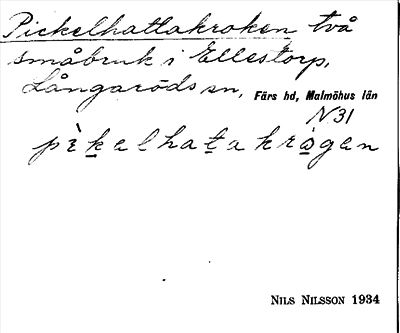 Pickelhattakroken två
småbruk i Ellestorp,
Långaröds sn, Färs hd, Malmöhus län
N31
pìkelhatakrògen
NILS NILSSON 1934